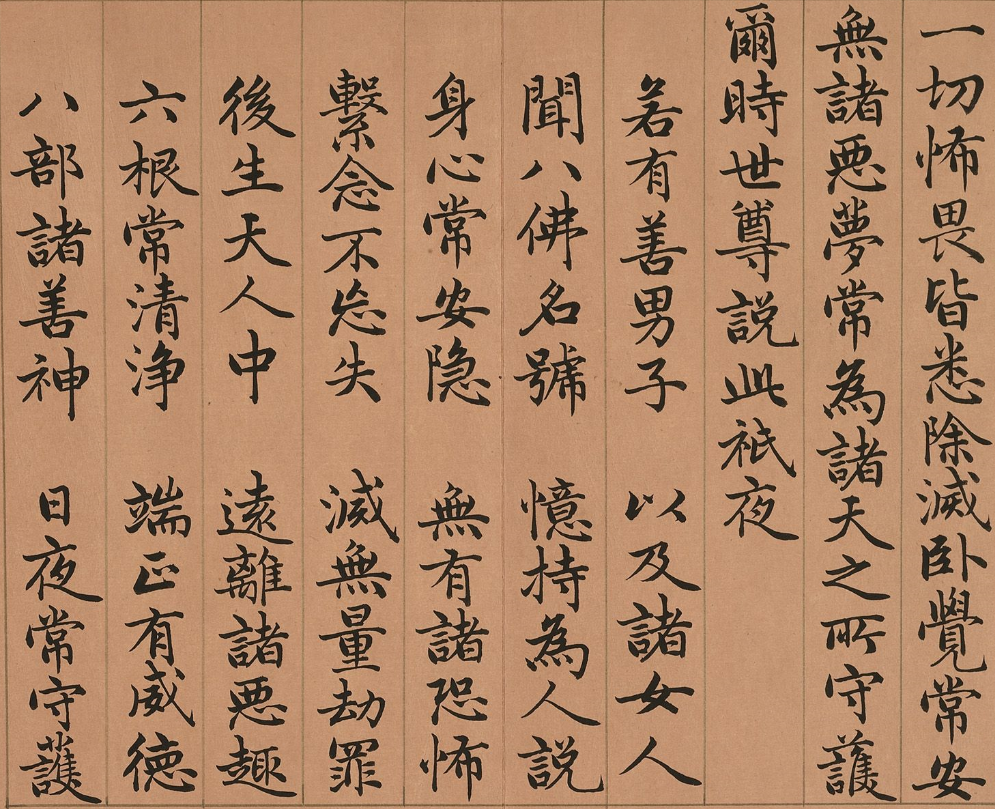 一切怖畏皆悉除滅卧覺常安
無諸惡夢常為諸天之所守護
爾時世尊説此祇夜
若有善男子　以及諸女人
聞八佛名號　憶持為人説
身心常安隐　無有諸恐怖
繫念不忘失　滅無量劫罪
後生天人中　遠離諸惡趣
六根常清淨　端正有威德
八部諸善神　日夜常守護